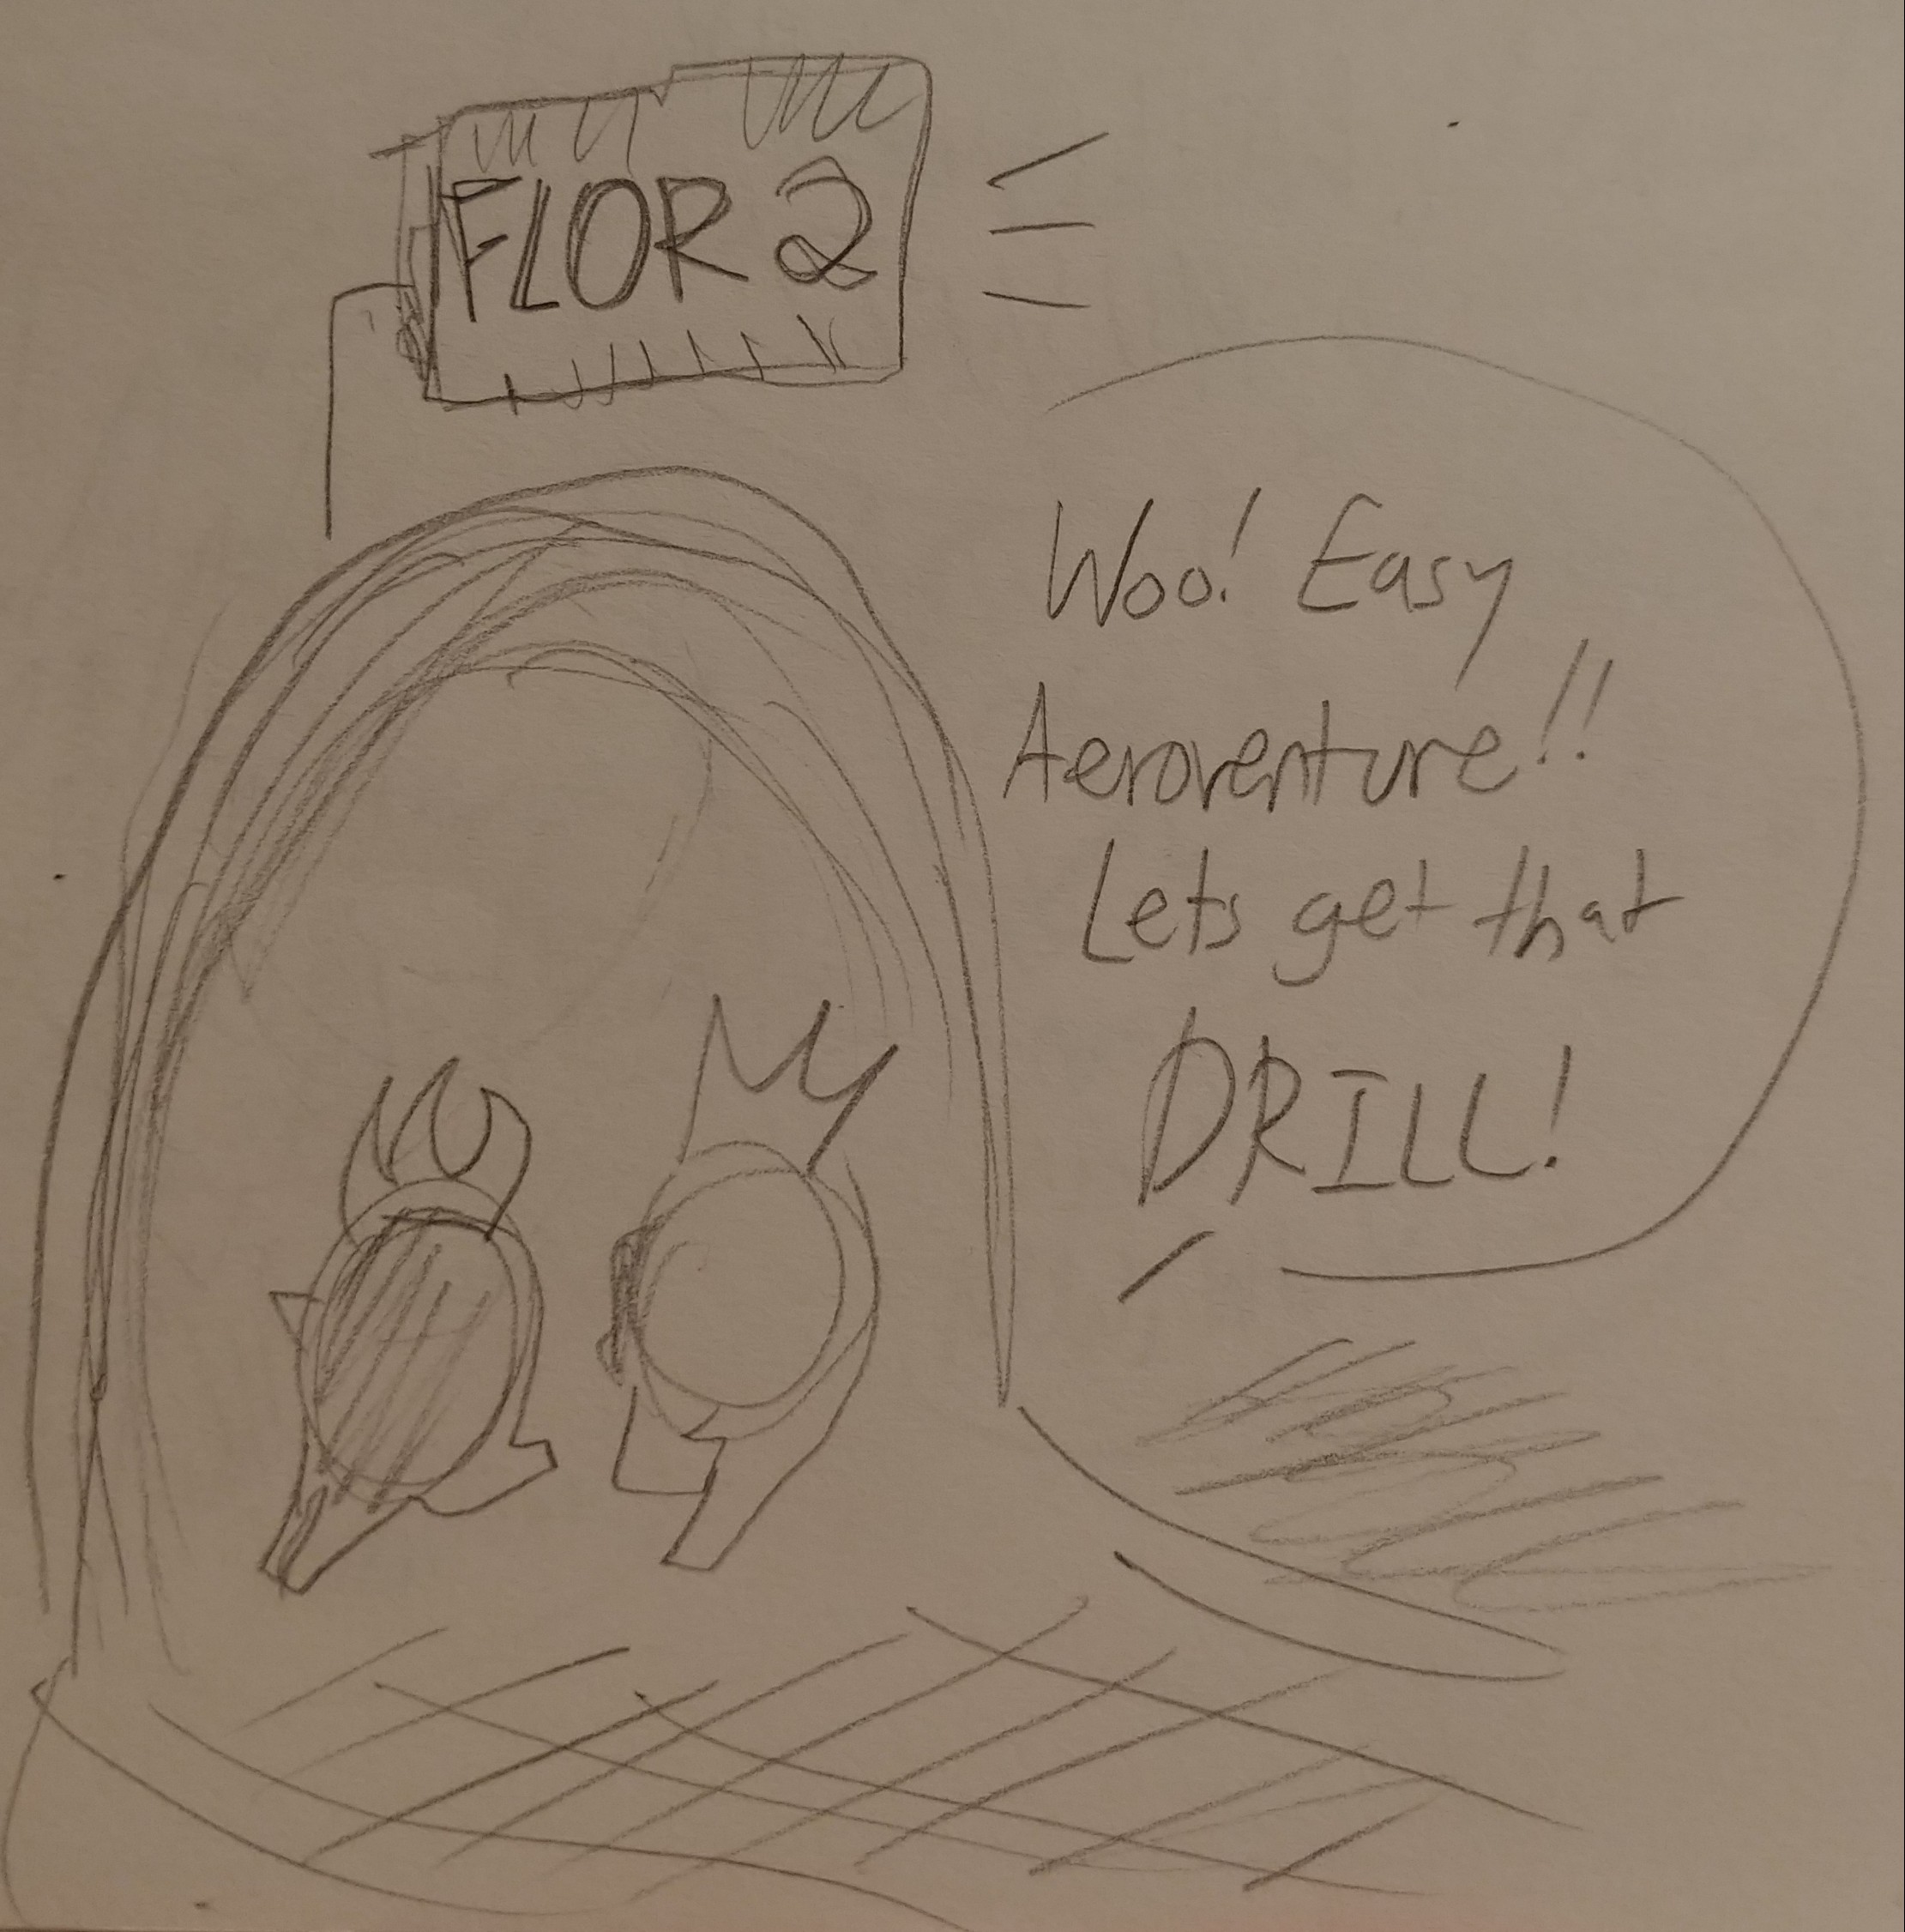 FLOR 2
Woo! Easy
Aeroventure!!
Lets get that
DRILL!